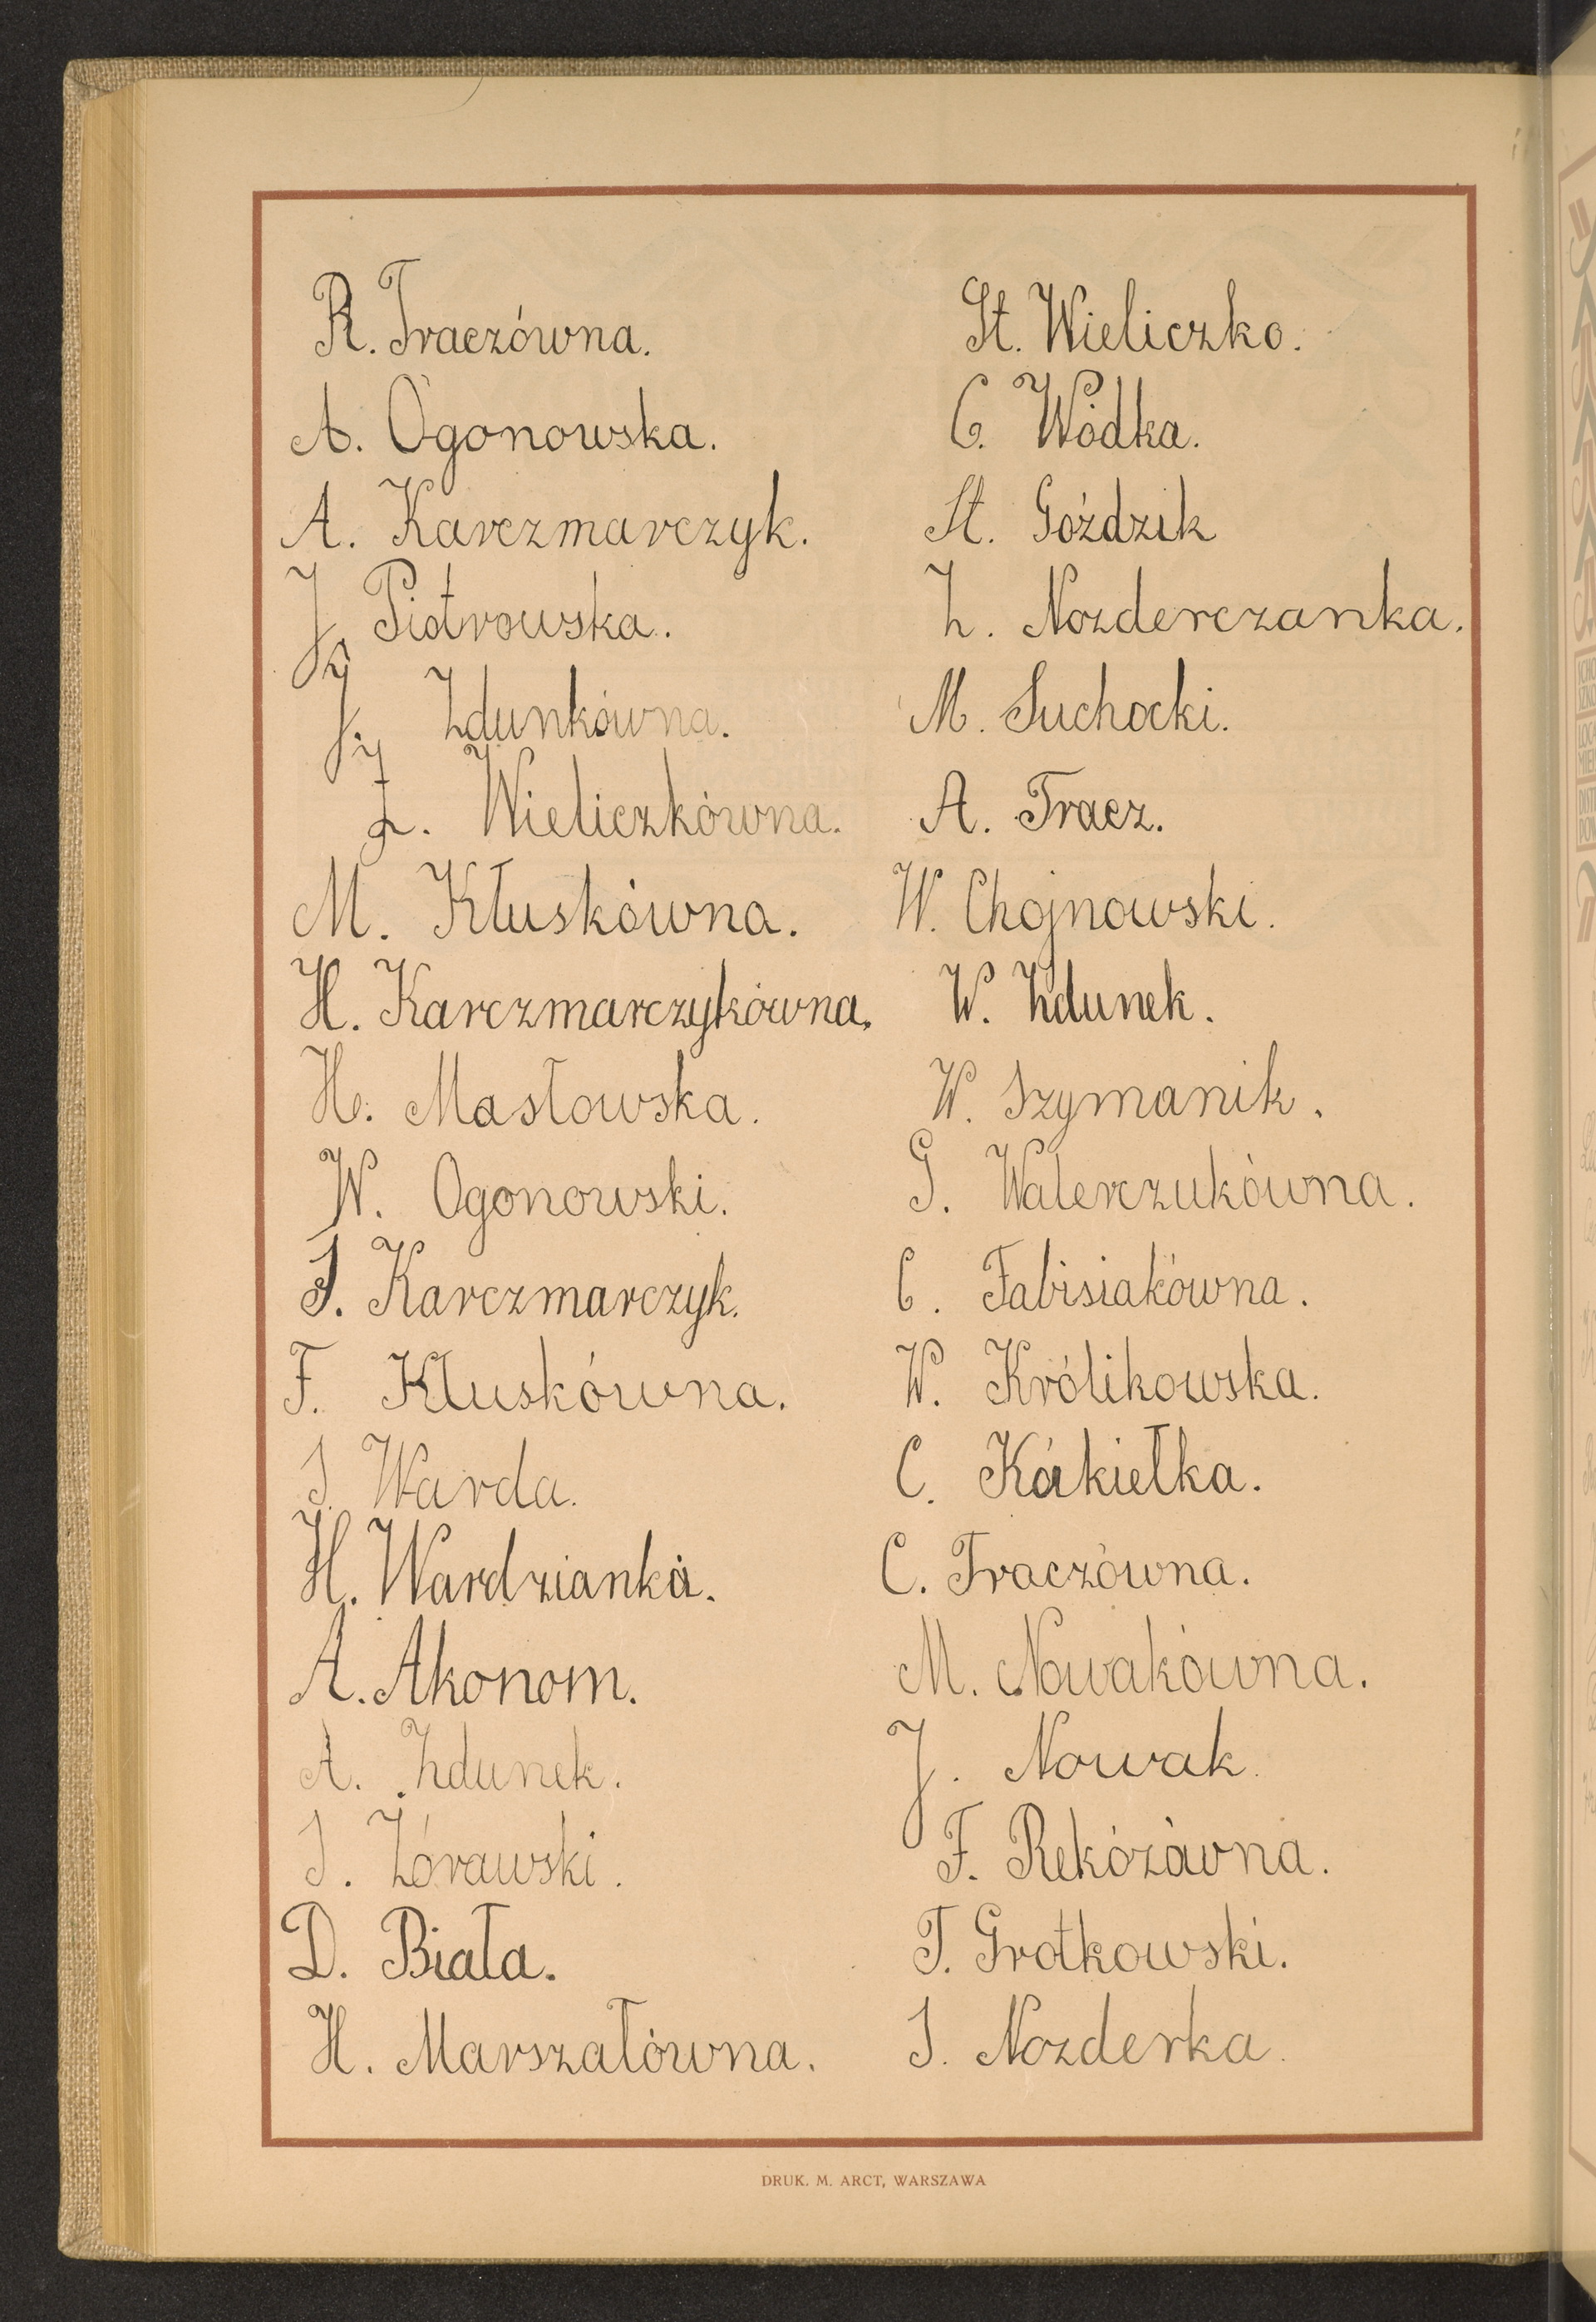 R. Traczówna.
A. Ogonowska.
A. Karczmarczyk.
J. Piotrowska.
J. Zdunkówna.
Z. Wieliczkówna.
M. Kłuskówna.
H. Karczmarczykówna.
H. Masłowska.
W. Ogonowski.
S. Karczmarczyk.
F. Kłuskówna.
S. Warda.
H. Wardzianka.
A. Akonom.
A. Zdunek.
S. Zórawski.
D. Biała.
H. Marszałówna.
St. Wieliczko.
C. Wódka.
St. Goździk
Z. Nozderczanka.
M. Suchocki.
A. Tracz.
W. Chojnowski.
W. Zdunek.
W. Szymanik.
G. Walerczukówna.
C. Fabisiakówna.
W. Królikowska.
C. Kąkiełka.
C. Traczówna.
M. Nowakówna.
J. Nowak.
F. Rekózówna.
T. Grotkowski.
S. Nozderka.
DRUK. M. ARCT, WARSZAWA